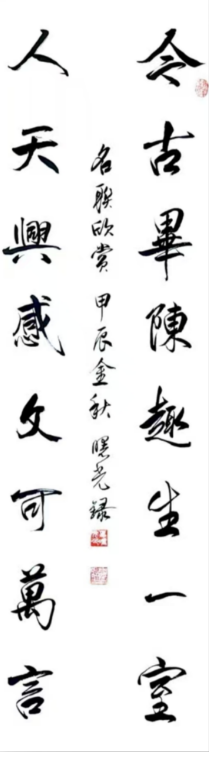 今古畢陳趣生一室
名聯欣賞 甲辰金秋 曙光錄
人天興感文可萬言